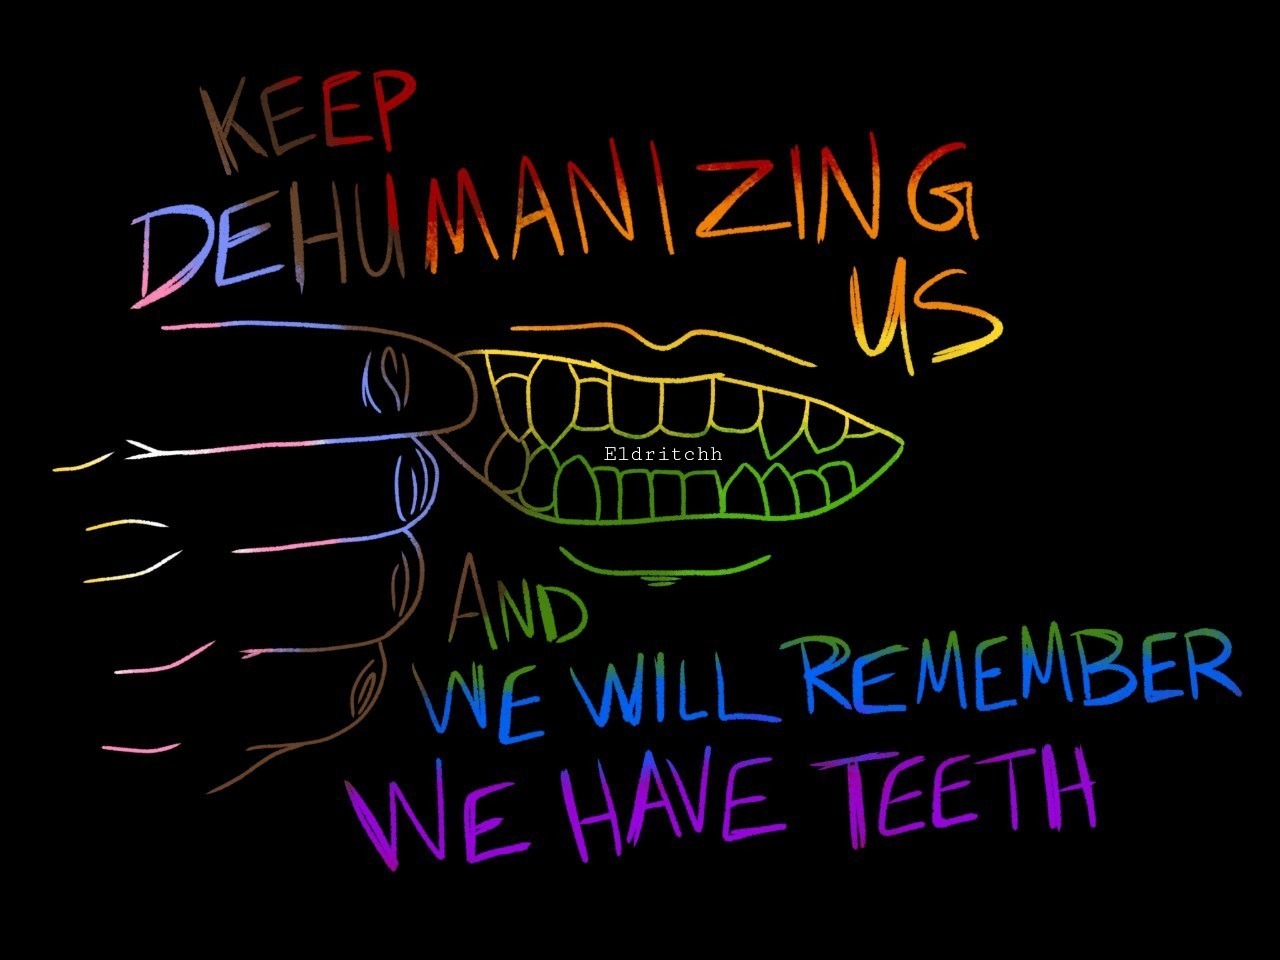 KEEP
DEHUMANIZING
US
Eldritchh
AND
WE WILL REMEMBER
WE HAVE TEETH